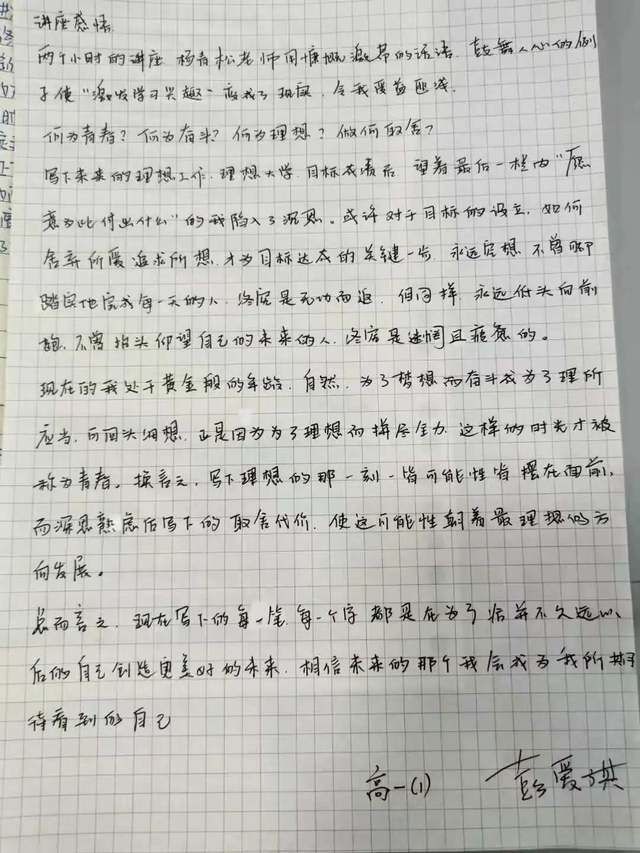 讲座感悟
两个小时的讲座 杨青松老师用慷慨激昂的话语、鼓舞人心的例
子使“激发学习兴趣”变成了现实,令我受益匪浅.
何为青春?何为奋斗?何为理想?做何取舍?
写下未来的理想工作、理想大学、目标成绩后 望着最后一栏内“愿
意为此付出什么”的我陷入了沉思。或许对于目标的设立,如何
舍弃所爱追求所想.才为目标达成的关键一步.永远空想、不曾脚
踏实地完成每一天的人,终究是无功而返.但同样,永远低头向前
跑、不曾抬头仰望自己的未来的人.终究是迷惘且疲惫的。
现在的我处于黄金般的年龄.自然,为了梦想而奋斗成为了理所
应当,而回头细想.正是因为为了理想而拼尽全力.这样的时光才被
称为青春。换言之,写下理想的那一刻一皆可能性皆摆在面前,
而深思熟虑后写下的取舍代价.使这可能性朝着最理想的方
向发展。
总而言之,现在写下的每一笔每一个字都是在为了后并不久远以
后的自己创造更美好的未来.相信未来的那个我会成为我所期
待看到的自己
高一(1) 彭爱琪